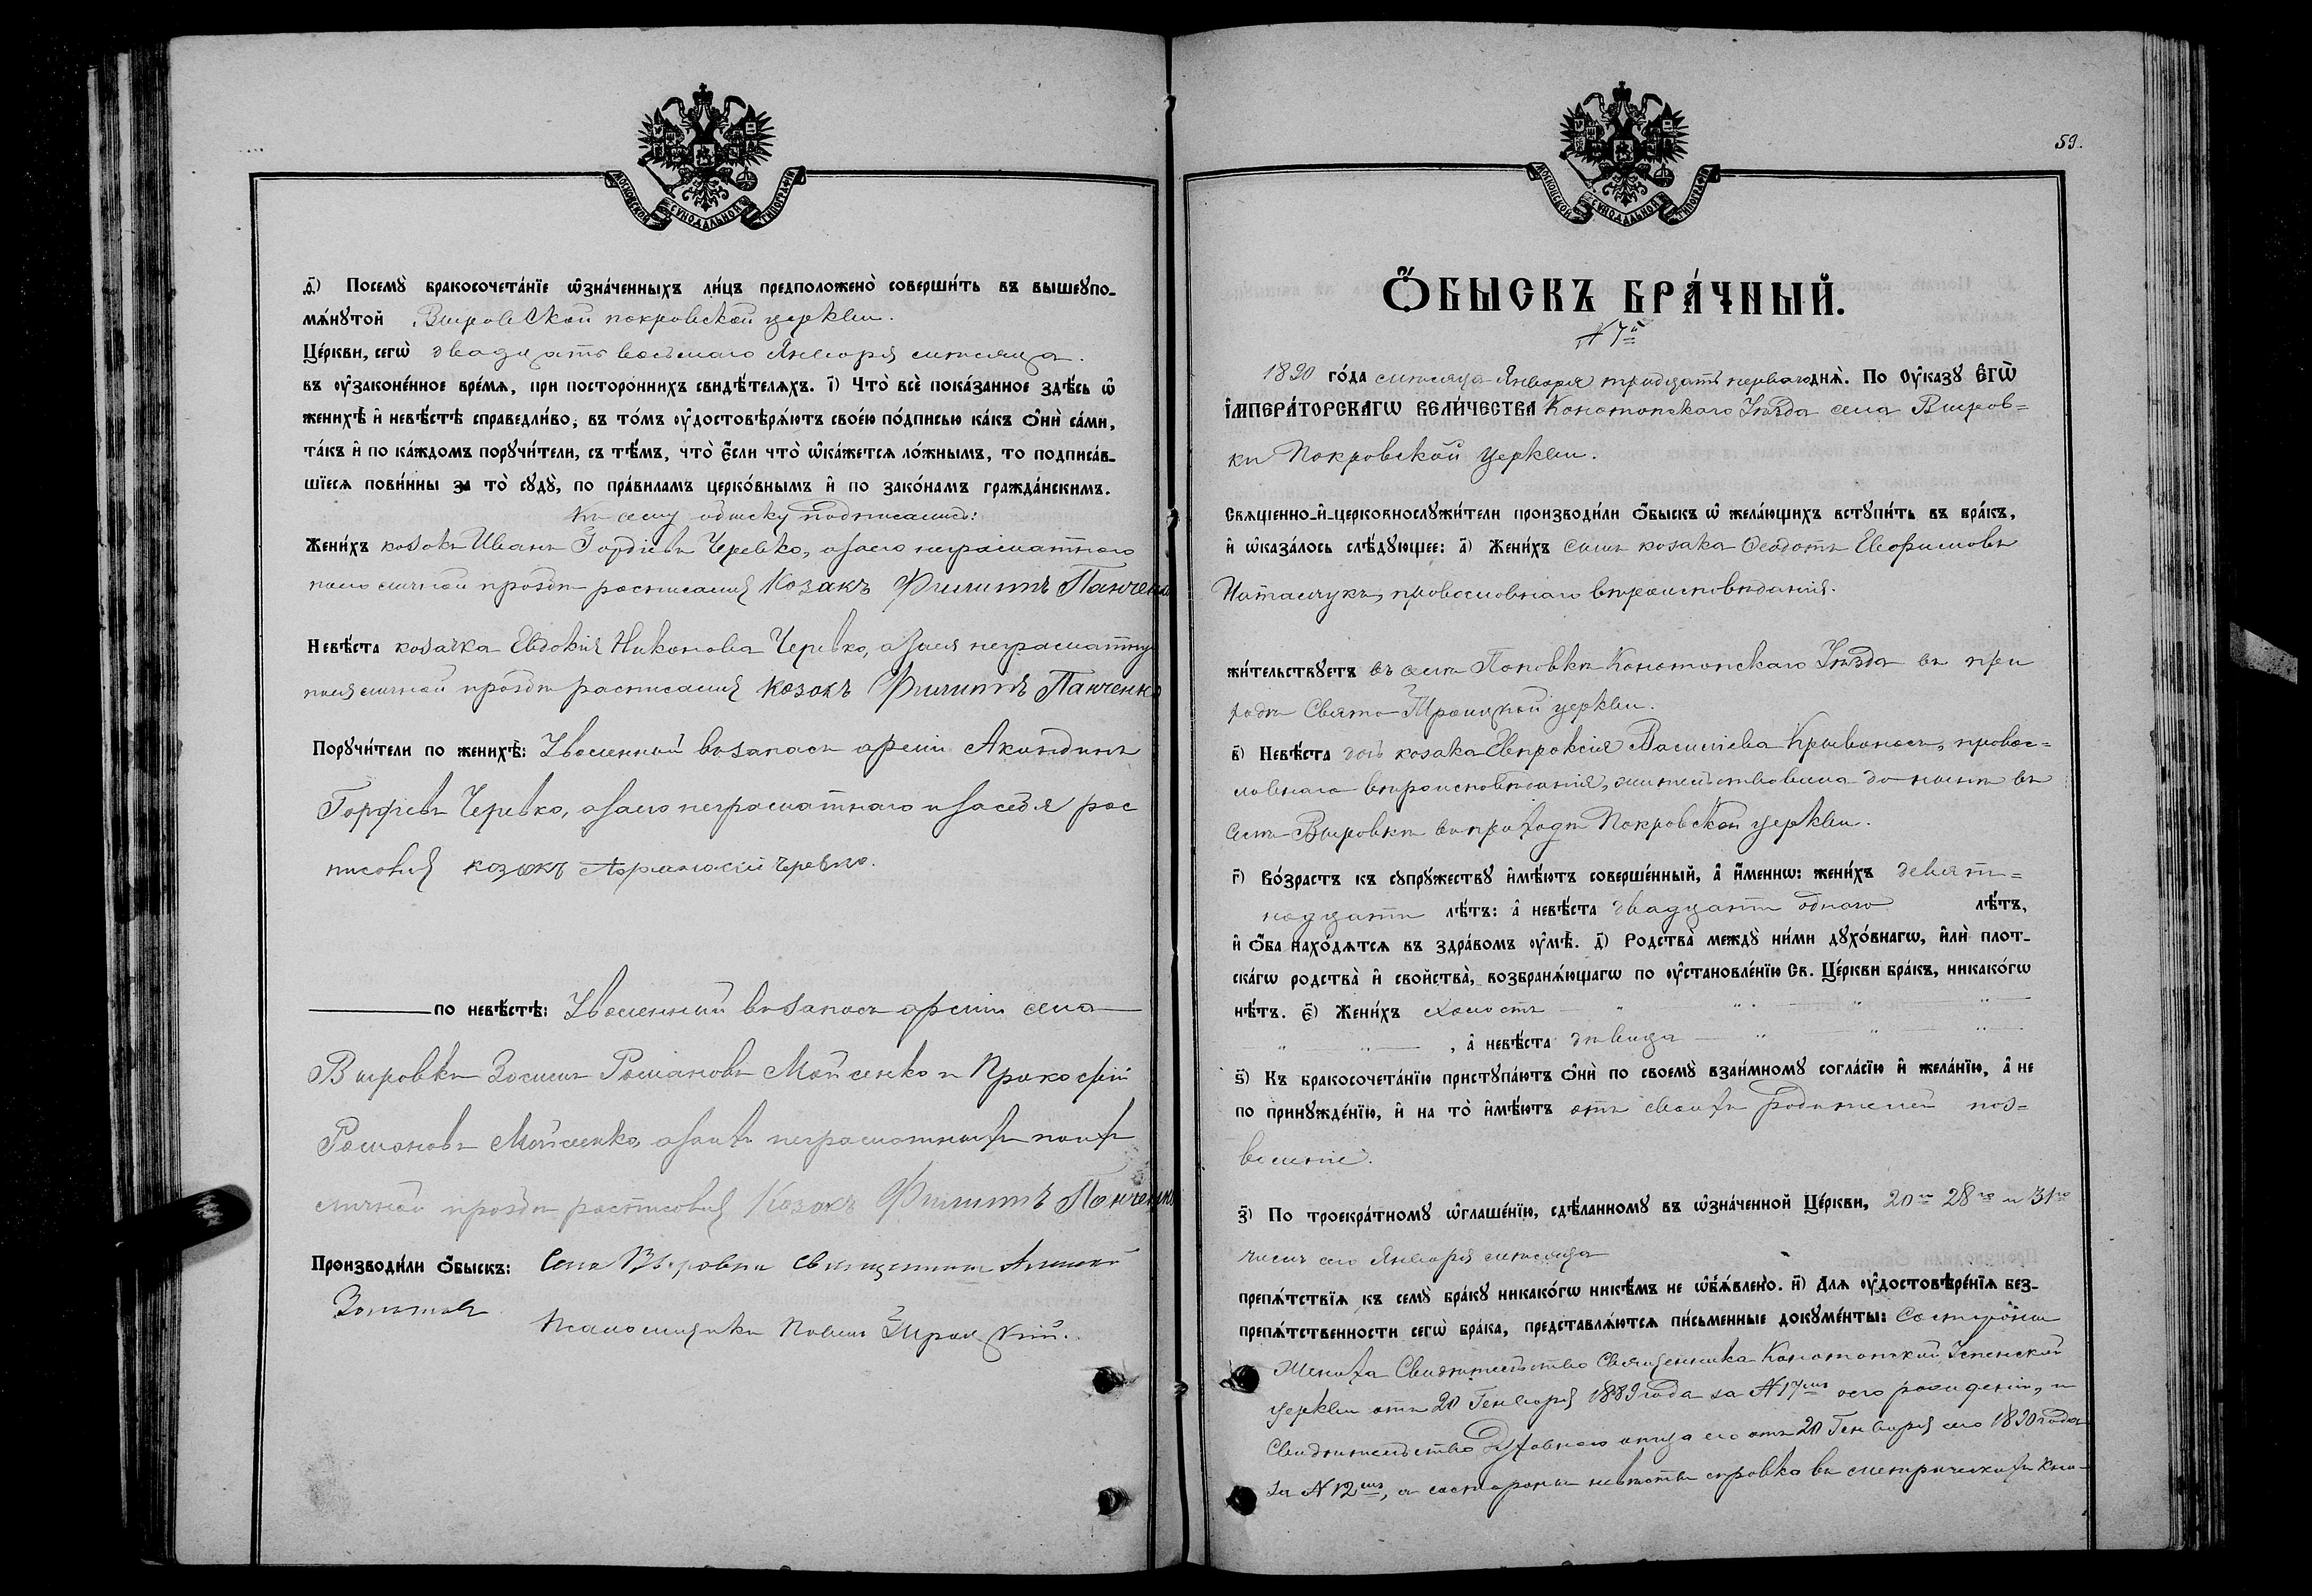 МОСКОВСКОЙ СУНОДАЛЬНОЙ ТИПОГРАФІИ
д҃) Посемꙋ̀ бракосочета́нїе ѡ҆зна́ченныхъ ли́цъ предположено̀ соверши́ть въ вышеꙋпо-
мѧ́нꙋтой Выровской покровской церкви.
Це́ркви, сегѡ̀ двадцать восьмаго Января месяца.
въ ᲂу҆законе́нное вре́мѧ, при посторо́ннихъ свидѣ́телѧхъ. і҃) Что̀ всѐ пока́занное здѣ́сь ѡ҆
женихѣ̀ и҆ невѣ́стѣ справедли́во, въ то́мъ ᲂу҆достовѣрѧ́ютъ свое́ю по́дписью ка́къ ѻ҆нѝ са́ми,
та́къ и҆ по ка́ждомъ порꙋчи́тели, съ тѣ́мъ, что̀ є҆́сли что̀ ѡ҆ка́жетсѧ ло́жнымъ, то подписа́в-
шїесѧ пови́нны за то̀ сꙋдꙋ̀, по пра́виламъ церко́внымъ и҆ по зако́намъ гражда́нскимъ.
Къ сему обыску подписались:
Жени́хъ козакъ Иванъ Гордіевъ Черевко, а за его неграматнаго
по его личной прозбѣ росписался Козакъ Филиппъ Панченко
Невѣ́ста козачка Евдокія Никонова Черевко, а за ея неграматную
по ея личной прозбѣ росписался Козакъ Филиппъ Панченко
Порꙋчи́тели по женихѣ̀: Уволенный въ запасъ арміи Акиндинъ
Гордіевъ Черевко, а за его неграматнаго и за себя рос
писовся козакъ Афанасій Черевко.
по невѣ́стѣ: Уволенный въ запасъ арміи села
Выровки Зосимъ Романовъ Мойсенко и Прокофій
Романовъ Мойсенко, а за ихъ неграматныхъ по ихъ
личной прозбѣ росписовся Козакъ Филиппъ Панченко
Производи́ли ѻ҆́быскъ: Села Выровки священникъ Алексій
Псаломщикъ Павелъ
59.
МОСКОВСКОЙ СУНОДАЛЬНОЙ ТИПОГРАФІИ
Ѻ҆́БЫСКЪ БРА́ЧНЫЙ.
№ 7й
1890 го́да месяца Января тридцать перваго днѧ̀. По Оу҆ка́зꙋ Є҆ГѠ̀
І҆МПЕРА́ТОРСКАГѠ ВЕЛИ́ЧЕСТВА Конотопского Уѣзда села Выров-
ки Покровской церкви.
Свѧще́нно-и҆-церковнослꙋжи́тели производи́ли ѻ҆́быскъ ѡ҆ жела́ющихъ встꙋпи́ть въ бра́къ,
и҆ ѡ҆каза́лось слѣ́дꙋющее: а҃) Жени́хъ сынъ козака Феодотъ Евфимовъ
православнаго вѣроисповѣданія.
жи́тельствꙋетъ въ селѣ Поповкѣ Конотопскаго Уѣзда въ при
ходѣ Свято-Троицкой церкви.
в҃) Невѣ́ста дочь козака Евпраксія Васильева Кривоносъ, правос-
лавнаго вѣроисповѣданія, жительствовала до нынѣ въ
селѣ Выровкѣ въ приходѣ Покровской церкви.
г҃) Во́зрастъ къ сꙋпрꙋ́жествꙋ и҆мѣ́ютъ соверше́нный, а҆ и҆́меннѡ: жени́хъ девят-
надцати лѣ́тъ: а҆ невѣ́ста двадцати одного лѣ́тъ,
и҆ ѻ҆́ба нахо́дѧтсѧ въ здра́вомъ ᲂу҆мѣ̀. д҃) Родства̀ междꙋ̀ ни́ми дꙋхо́внагѡ, и҆лѝ плот-
ска́гѡ родства̀ и҆ сво́йства, возбранѧ́ющагѡ по ᲂу҆становле́нїю Св. Це́ркви бра́къ, никако́гѡ
нѣ́тъ. є҃) Жени́хъ холостъ
, а҆ невѣ́ста дѣвица
ѕ҃) Къ бракосочета́нїю пристꙋпа́ютъ ѻ҆нѝ по своемꙋ̀ взаи́мномꙋ согла́сїю и҆ жела́нїю, а҆ не
по принꙋжде́нїю, и҆ на то̀ и҆мѣ́ютъ отъ своихъ родителей поз-
воленіе.
з҃) По троекра́тномꙋ ѡ҆глаше́нїю, сдѣ́ланномꙋ въ ѡ҆зна́ченной Це́ркви, 20го 28го и 31го
числъ сего Января месяца
препѧ́тствїѧ къ семꙋ̀ бра́кꙋ никако́гѡ никѣ́мъ не ѡ҆б̾ѧ́влено. и҃) Для ᲂу҆достовѣре́нїѧ без-
препѧ́тственности сегѡ̀ бра́ка, представлѧ́ютсѧ пи́сьменные докꙋме́нты: Со стороны
жениха Свидѣтельство Священника Конотопской Успенской
церкви отъ 20 Генваря 1889 года за № 17мъ о его рожденіи, и
Свидѣтельство Духовнаго отца его отъ 20 Генваря сего 1890 года
за № 12мъ, а со стороны невѣсты справка въ метрическихъ кни-